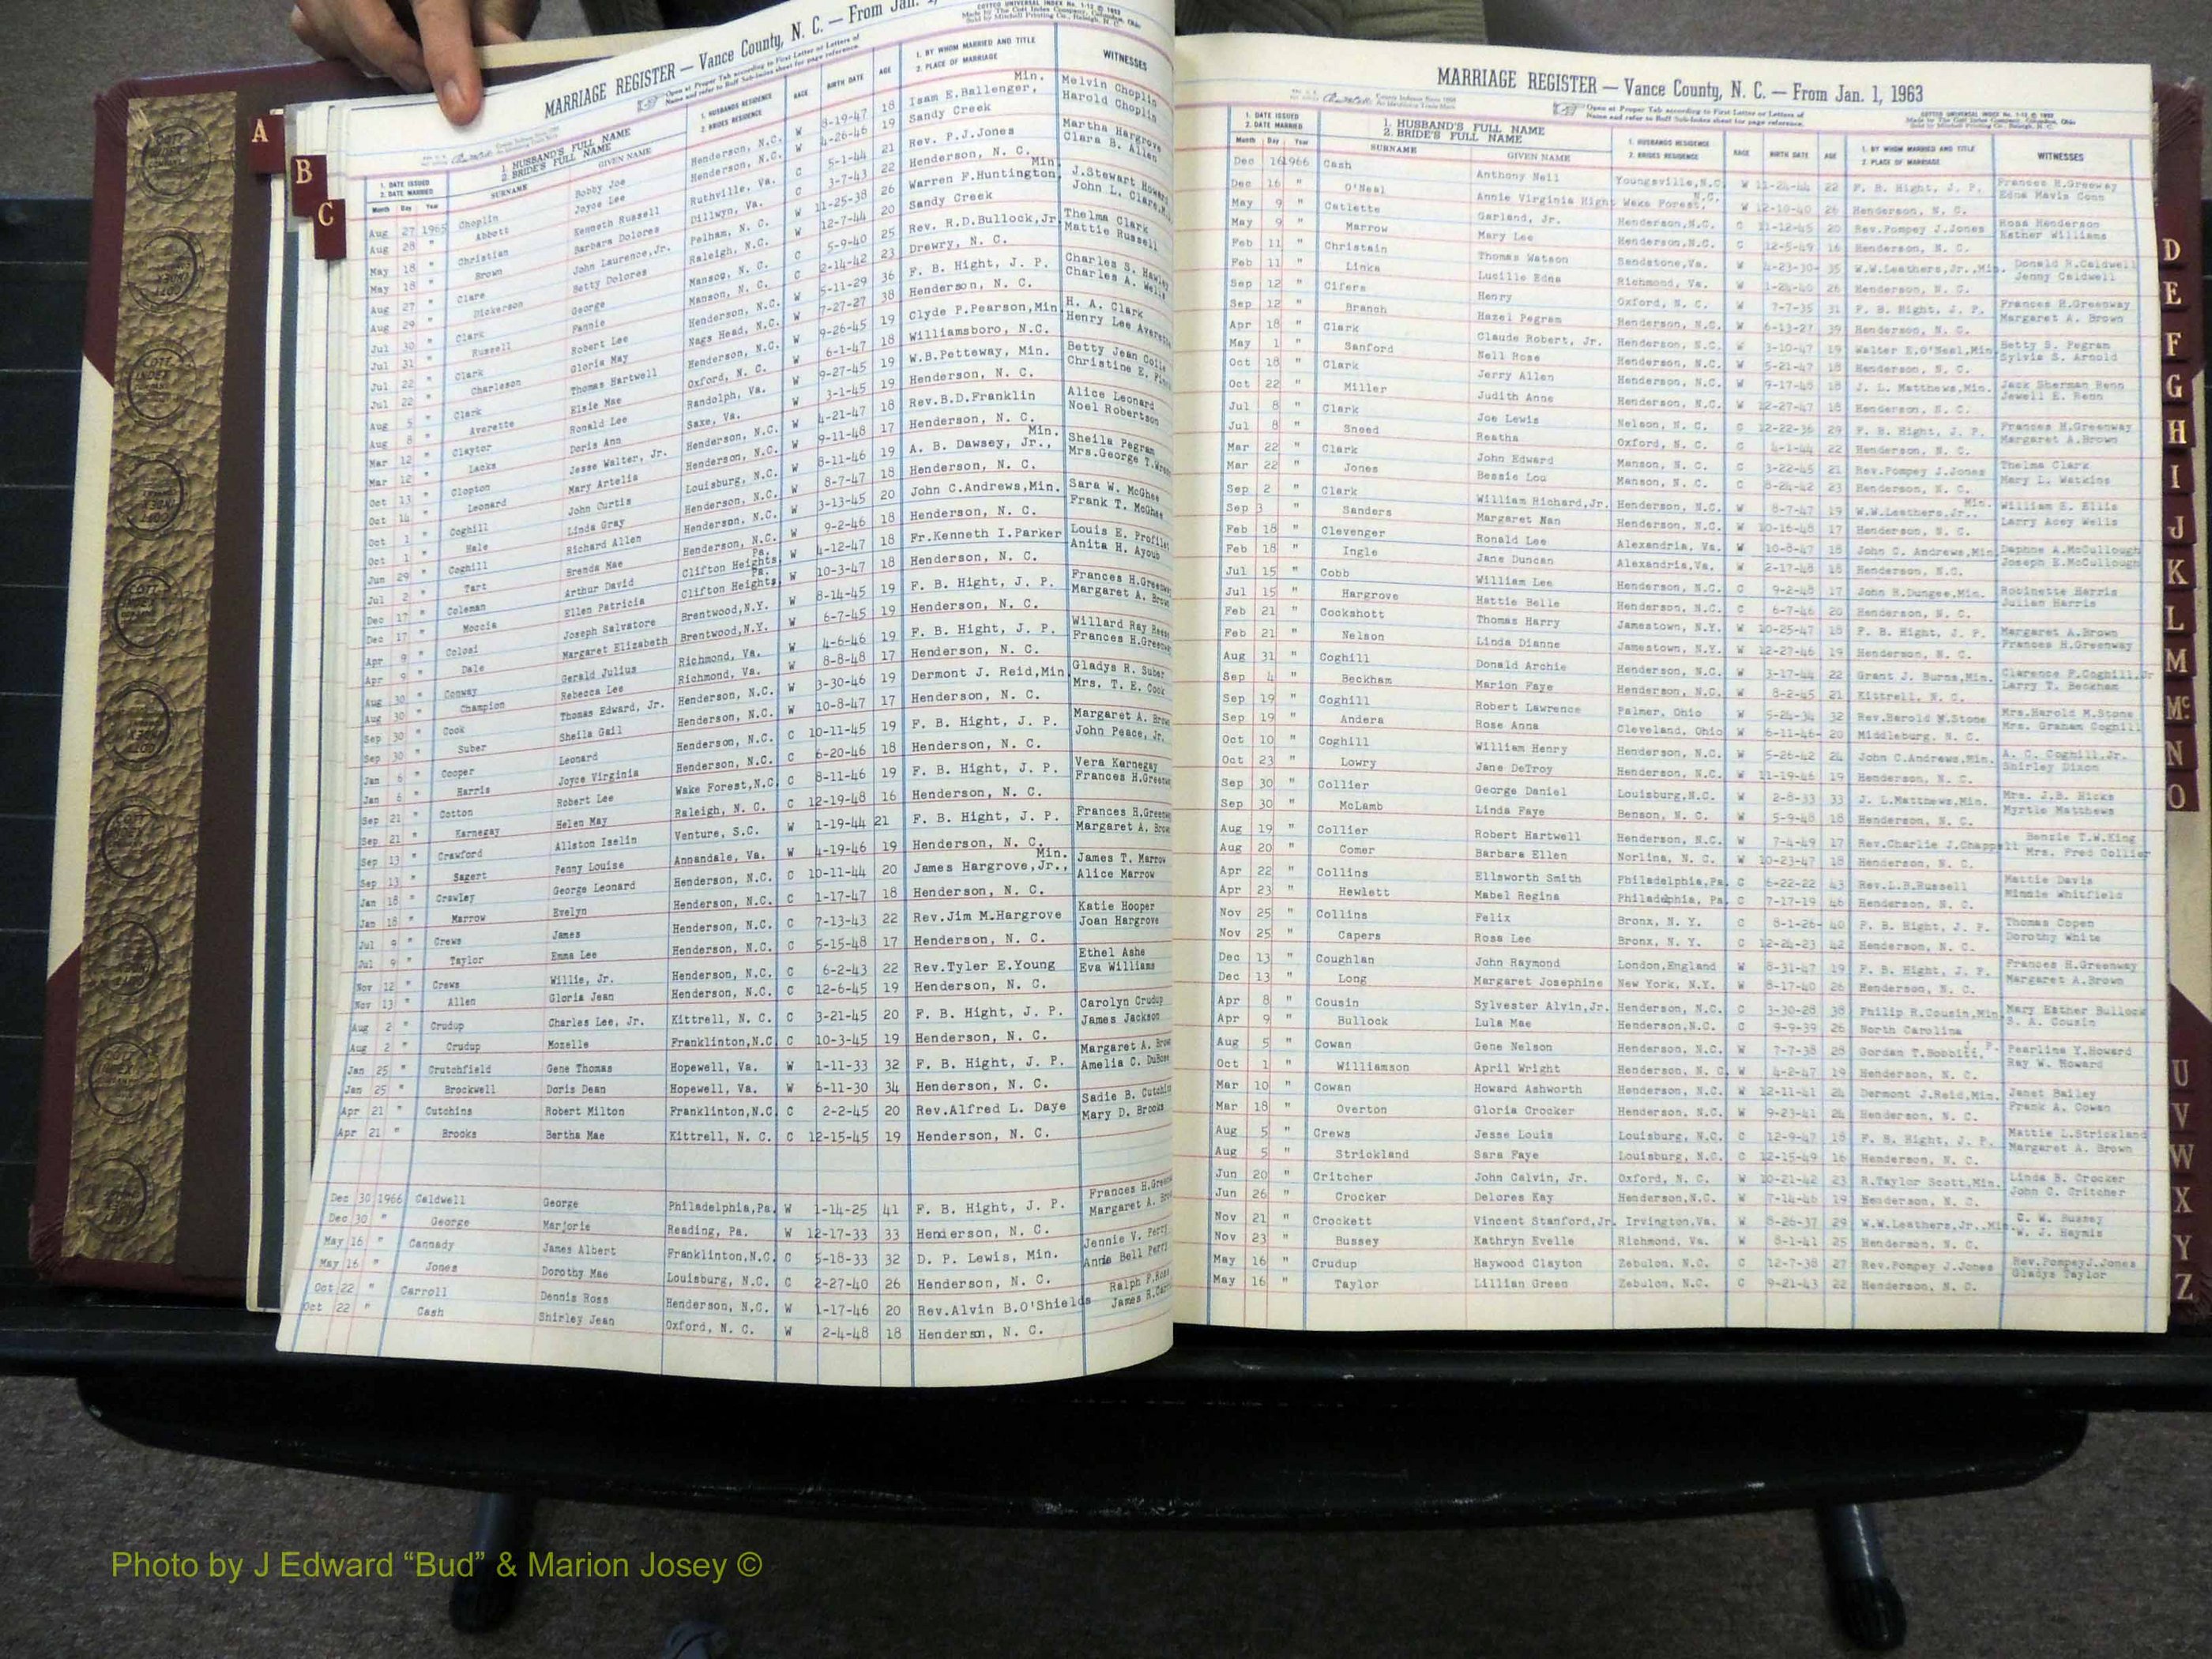 MARRIAGE REGISTER — Vance County, N. C. — From Jan. 1,
COTTCO UNIVERSAL INDEX No. 1-12 © 1952
Made by The Cott Index Company, Columbus, Ohio
Sold by Mitchell Printing Co., Raleigh, N. C.
Open at Proper Tab according to First Letter or Letters of
Name and refer to Buff Sub-Index sheet for page reference.
1. DATE ISSUED 2. DATE MARRIED Month Day Year
1. HUSBAND'S FULL NAME 2. BRIDE'S FULL NAME SURNAME GIVEN NAME
1. HUSBANDS RESIDENCE 2. BRIDES RESIDENCE RACE BIRTH DATE AGE
1. BY WHOM MARRIED AND TITLE 2. PLACE OF MARRIAGE WITNESSES
Aug 27 1965 Choplin Bobby Joe Henderson, N.C. W 8-19-47 18 Isam E.Ballenger, Min. Melvin Choplin
Aug 28 " Abbott Joyce Lee Henderson, N.C. W 4-26-46 19 Sandy Creek Harold Choplin
May 18 " Christian Kenneth Russell Ruthville, Va. C 5-1-44 21 Rev. P.J.Jones Martha Hargrove
May 18 " Brown Barbara Dolores Dillwyn, Va. C 3-7-43 22 Henderson, N. C. Clara B. Allen
Aug 27 " Clare John Laurence,Jr. Pelham, N. C. W 11-25-38 26 Warren F.Huntington, Min. J.Stewart
Aug 29 " Dickerson Betty Dolores Raleigh, N.C. W 12-7-44 20 Sandy Creek John L. Clare
Jul 30 " Clark George Manson, N. C. C 5-9-40 25 Rev. R.D.Bullock,Jr Thelma Clark
Jul 31 " Russell Fannie Manson, N. C. C 2-14-42 23 Drewry, N. C. Mattie Russell
Jul 22 " Clark Robert Lee Henderson, N.C. W 5-11-29 36 F. B. Hight, J. P. Charles S. Hawley
Jul 22 " Charleson Gloria May Nags Head, N.C. W 7-27-27 38 Henderson, N. C. Charles A. Wells
Aug 5 " Clark Thomas Hartwell Henderson, N.C. W 9-26-45 19 Clyde P.Pearson,Min H. A. Clark
Aug 8 " Averette Elsie Mae Oxford, N. C. W 6-1-47 18 Williamsboro, N.C. Henry Lee Averette
Mar 12 " Claytor Ronald Lee Randolph, Va. W 9-27-45 19 W.B.Petteway, Min. Betty Jean
Mar 12 " Lacks Doris Ann Saxe, Va. W 3-1-45 19 Henderson, N. C. Christine E.
Oct 13 " Clopton Jesse Walter, Jr. Henderson, N.C. W 4-21-47 18 Rev.B.D.Franklin Alice Leonard
Oct 14 " Leonard Mary Artelia Henderson, N.C. W 9-11-48 17 Henderson, N. C. Noel Robertson
Oct 1 " Coghill John Curtis Louisburg, N.C. W 8-11-46 19 A. B. Dawsey, Jr., Min. Sheila Pegram
Oct 1 " Hale Linda Gray Henderson, N.C. W 8-7-47 18 Henderson, N. C. Mrs.George T.
Jun 29 " Coghill Richard Allen Henderson, N.C. W 3-13-45 20 John C.Andrews,Min. Sara W. McGhee
Jul 2 " Tart Brenda Mae Henderson, N.C. W 9-2-46 18 Henderson, N. C. Frank T. McGhee
Dec 17 " Coleman Arthur David Clifton Heights, Pa. W 4-12-47 18 Fr.Kenneth I.Parker Louis E.
Dec 17 " Moccia Ellen Patricia Clifton Heights, Pa. W 10-3-47 18 Henderson, N. C. Anita H. Ayoub
Apr 9 " Colosi Joseph Salvatore Brentwood,N.Y. W 8-14-45 19 F. B. Hight, J. P. Frances H.Greenway
Apr 9 " Dale Margaret Elizabeth Brentwood,N.Y. W 6-7-45 19 Henderson, N. C. Margaret A. Brown
Aug 30 " Conway Gerald Julius Richmond, Va. W 4-6-46 19 F. B. Hight, J. P. Willard Ray
Aug 30 " Champion Rebecca Lee Richmond, Va. W 8-8-48 17 Henderson, N. C. Frances H.Greenway
Sep 30 " Cook Thomas Edward, Jr. Henderson, N.C. W 3-30-46 19 Dermont J. Reid,Min Gladys R. Suber
Sep 30 " Suber Sheila Gail Henderson, N.C. W 10-8-47 17 Henderson, N. C. Mrs. T. E. Cook
Jan 6 " Cooper Leonard Henderson, N.C. C 10-11-45 19 F. B. Hight, J. P. Margaret A. Brown
Jan 6 " Harris Joyce Virginia Henderson, N.C. C 6-20-46 18 Henderson, N. C. John Peace, Jr.
Sep 21 " Cotton Robert Lee Wake Forest,N.C C 8-11-46 19 F. B. Hight, J. P. Vera Karnegay
Sep 21 " Karnegay Helen May Raleigh, N. C. C 12-19-48 16 Henderson, N. C. Frances H.Greenway
Sep 13 " Crawford Allston Iselin Venture, S.C. W 1-19-44 21 F. B. Hight, J. P. Frances H.Greenway
Sep 13 " Sagert Penny Louise Annandale, Va. W 4-19-46 19 Henderson, N. C. Margaret A. Brown
Jan 18 " Crawley George Leonard Henderson, N.C. C 10-11-44 20 James Hargrove,Jr., Min. James T. Marrow
Jan 18 " Marrow Evelyn Henderson, N.C. C 1-17-47 18 Henderson, N. C. Alice Marrow
Jul 9 " Crews James Henderson, N.C. C 7-13-43 22 Rev.Jim M.Hargrove Katie Hooper
Jul 9 " Taylor Emma Lee Henderson, N.C. C 5-15-48 17 Henderson, N. C. Joan Hargrove
Nov 12 " Crews Willie, Jr. Henderson, N.C. C 6-2-43 22 Rev.Tyler E.Young Ethel Ashe
Nov 13 " Allen Gloria Jean Henderson, N.C. C 12-6-45 19 Henderson, N. C. Eva Williams
Aug 2 " Crudup Charles Lee, Jr. Kittrell, N. C. C 3-21-45 20 F. B. Hight, J. P. Carolyn Crudup
Aug 2 " Crudup Mozelle Franklinton,N.C C 10-3-45 19 Henderson, N. C. James Jackson
Jan 25 " Crutchfield Gene Thomas Hopewell, Va. W 1-11-33 32 F. B. Hight, J. P. Margaret A. Brown
Jan 25 " Brockwell Doris Dean Hopewell, Va. W 6-11-30 34 Henderson, N. C. Amelia C. DuBose
Apr 21 " Cutchins Robert Milton Franklinton,N.C C 2-2-45 20 Rev.Alfred L. Daye Sadie B. Cutchins
Apr 21 " Brooks Bertha Mae Kittrell, N. C. C 12-15-45 19 Henderson, N. C. Mary D. Brooks
Dec 30 1966 Caldwell George Philadelphia,Pa. W 1-14-25 41 F. B. Hight, J. P. Frances H.Greenway
Dec 30 " George Marjorie Reading, Pa. W 12-17-33 33 Henderson, N. C. Margaret A. Brown
May 16 " Cannady James Albert Franklinton,N.C. C 5-18-33 32 D. P. Lewis, Min. Jennie V. Perry
May 16 " Jones Dorothy Mae Louisburg, N.C. C 2-27-40 26 Henderson, N. C. Annie Bell Perry
Oct 22 " Carroll Dennis Ross Henderson, N.C. W 1-17-46 20 Rev.Alvin B.O'Shields Ralph P.Ross
Oct 22 " Cash Shirley Jean Oxford, N. C. W 2-4-48 18 Henderson, N. C. James R.
MARRIAGE REGISTER — Vance County, N. C. — From Jan. 1, 1963
Open at Proper Tab according to First Letter or Letters of
Name and refer to Buff Sub-Index sheet for page reference.
COTTCO UNIVERSAL INDEX No. 1-12 © 1952
Made by The Cott Index Company, Columbus, Ohio
Sold by Mitchell Printing Co., Raleigh, N. C.
1. DATE ISSUED 2. DATE MARRIED Month Day Year
1. HUSBAND'S FULL NAME 2. BRIDE'S FULL NAME SURNAME GIVEN NAME
1. HUSBANDS RESIDENCE 2. BRIDES RESIDENCE RACE BIRTH DATE AGE
1. BY WHOM MARRIED AND TITLE 2. PLACE OF MARRIAGE WITNESSES
Dec 16 1966 Cash Anthony Neil Youngsville,N.C. W 11-24-44 22 F. B. Hight, J. P. Frances H.Greenway
Dec 16 " O'Neal Annie Virginia High Wake Forest, N.C. W 12-10-40 26 Henderson, N. C. Edna Mavis Conn
May 9 " Catlette Garland, Jr. Henderson,N.C. C 11-12-45 20 Rev.Pompey J.Jones Ross Henderson
May 9 " Marrow Mary Lee Henderson,N.C. C 12-5-49 16 Henderson, N. C. Esther Williams
Feb 11 " Christain Thomas Watson Sandstone,Va. W 4-23-30 35 W.W.Leathers,Jr.,Min. Donald R.Caldwell
Feb 11 " Links Lucille Edna Richmond, Va. W 1-24-40 26 Henderson, N. C. Jenny Caldwell
Sep 12 " Cifers Henry Oxford, N. C. W 7-7-35 31 F. B. Hight, J. P. Frances H.Greenway
Sep 12 " Branch Hazel Pegram Henderson, N.C. W 6-13-27 39 Henderson, N. C. Margaret A. Brown
Apr 18 " Clark Claude Robert, Jr. Henderson, N.C. W 3-10-47 19 Walter E.O'Neal,Min Betty S. Pegram
May 1 " Sanford Nell Rose Henderson, N.C. W 5-21-47 18 Henderson, N. C. Sylvia S. Arnold
Oct 18 " Clark Jerry Allen Henderson, N.C. W 9-17-48 18 J. L. Matthews,Min. Jack Sherman Renn
Oct 22 " Miller Judith Anne Henderson, N.C. W 12-27-47 18 Henderson, N. C. Jewell E. Renn
Jul 8 " Clark Joe Lewis Nelson, N. C. C 12-22-36 29 F. B. Hight, J. P. Frances H.Greenway
Jul 8 " Sneed Reatha Oxford, N. C. C 4-1-44 22 Henderson, N. C. Margaret A.Brown
Mar 22 " Clark John Edward Manson, N. C. C 3-22-45 21 Rev.Pompey J.Jones Thelma Clark
Mar 22 " Jones Bessie Lou Manson, N. C. C 8-24-42 23 Henderson, N. C. Mary L. Watkins
Sep 2 " Clark William Richard,Jr. Henderson, N.C. W 8-7-47 19 W.W.Leathers,Jr., Min. William E. Ellis
Sep 3 " Sanders Margaret Nan Henderson, N.C. W 10-16-48 17 Henderson, N. C. Larry Acey Wells
Feb 18 " Clevenger Ronald Lee Alexandria, Va. W 10-8-47 18 John C. Andrews,Min Daphne A.McCullough
Feb 18 " Ingle Jane Duncan Alexandria,Va. W 2-17-48 18 Henderson, N.C. Joseph E.McCullough
Jul 15 " Cobb William Lee Henderson, N.C. C 9-2-48 17 John H.Dungee,Min. Robinette Harris
Jul 15 " Hargrove Hattie Belle Henderson, N.C. C 6-7-46 20 Henderson, N. C. Julian Harris
Feb 21 " Cockshott Thomas Harry Jamestown, N.Y. W 10-25-47 18 F. B. Hight, J. P. Margaret A.Brown
Feb 21 " Nelson Linda Dianne Jamestown, N.Y. W 12-27-46 19 Henderson, N. C. Frances H.Greenway
Aug 31 " Coghill Donald Archie Henderson, N.C. W 3-17-44 22 Grant J. Burns,Min. Clarence F.Coghill,Jr
Sep 4 " Beckham Marion Faye Henderson, N.C. W 8-2-45 21 Kittrell, N. C. Larry T. Beckham
Sep 19 " Coghill Robert Lawrence Palmer, Ohio W 5-24-34 32 Rev.Harold M.Stone Mrs.Harold M.Stone
Sep 19 " Andera Rose Anna Cleveland, Ohio W 6-11-46 20 Middleburg, N. C. Mrs. Graham Coghill
Oct 10 " Coghill William Henry Henderson, N.C. W 5-26-42 24 John C.Andrews,Min. A. C. Coghill,Jr.
Oct 23 " Lowry Jane DeTroy Henderson, N.C. W 11-19-46 19 Henderson, N. C. Shirley Dixon
Sep 30 " Collier George Daniel Louisburg,N.C. W 2-8-33 33 J. L.Matthews,Min. Mrs. J.B. Hicks
Sep 30 " McLamb Linda Faye Benson, N. C. W 5-9-48 18 Henderson, N. C. Myrtle Matthews
Aug 19 " Collier Robert Hartwell Henderson, N.C. W 7-4-49 17 Rev.Charlie J.Chappell Benzie T.W.King
Aug 20 " Comer Barbara Ellen Norlina, N. C. W 10-23-47 18 Henderson, N. C. Mrs. Fred Collier
Apr 22 " Collins Ellsworth Smith Philadelphia,Pa. C 6-22-22 43 Rev.L.B.Russell Mattie Davis
Apr 23 " Hewlett Mabel Regina Philadephia, Pa. C 7-17-19 46 Henderson, N. C. Mindie Whitfield
Nov 25 " Collins Felix Bronx, N. Y. C 8-1-26 40 F. B. Hight, J. P. Thomas Copen
Nov 25 " Capers Rosa Lee Bronx, N. Y. C 12-24-23 42 Henderson, N. C. Dorothy White
Dec 13 " Coughlan John Raymond London,England W 8-31-47 19 F. B. Hight, J. P. Frances H.Greenway
Dec 13 " Long Margaret Josephine New York, N.Y. W 8-17-40 26 Henderson, N. C. Margaret A.Brown
Apr 8 " Cousin Sylvester Alvin,Jr. Henderson, N.C. C 3-30-28 38 Philip R.Cousin,Min Mary Esther Bullock
Apr 9 " Bullock Lula Mae Henderson,N.C. C 9-9-39 26 North Carolina S. A. Cousin
Aug 5 " Cowan Gene Nelson Henderson, N.C. W 7-7-38 28 Gordan T.Bobbitt, J.P. Pearline Y.Howard
Oct 1 " Williamson April Wright Henderson, N. C. W 4-2-47 19 Henderson, N. C. Ray W. Howard
Mar 10 " Cowan Howard Ashworth Henderson, N.C. W 12-11-41 24 Dermont J.Reid,Min. Janet Bailey
Mar 18 " Overton Gloria Crocker Henderson, N.C. W 9-23-41 24 Henderson, N. C. Frank A. Cowan
Aug 5 " Crews Jesse Louis Louisburg, N.C. C 12-9-47 18 F. B. Hight, J. P. Mattie L.Strickland
Aug 5 " Strickland Sara Faye Louisburg, N.C. C 12-15-49 16 Henderson, N. C. Margaret A. Brown
Jun 20 " Critcher John Calvin, Jr. Oxford, N. C. W 10-21-42 23 R.Taylor Scott,Min. Linda B. Crocker
Jun 26 " Crocker Delores Kay Henderson,N.C. W 7-14-46 19 Henderson, N. C. John C. Critcher
Nov 21 " Crockett Vincent Stanford,Jr. Irvington,Va. W 8-26-37 29 W.W.Leathers,Jr.,Min. C. W. Bussey
Nov 23 " Bussey Kathryn Evelle Richmond, Va. W 8-1-41 25 Henderson, N. C. W. J. Haymis
May 16 " Crudup Haywood Clayton Zebulon, N.C. C 12-7-38 27 Rev.Pompey J.Jones Rev.PompeyJ.Jones
May 16 " Taylor Lillian Green Zebulon, N.C. C 9-21-43 22 Henderson, N. C. Gladys Taylor
A
B
C
D
E
F
G
H
I
J
K
L
M
Mc
N
O
U
V
W
X
Y
Z
Photo by J Edward “Bud” & Marion Josey ©